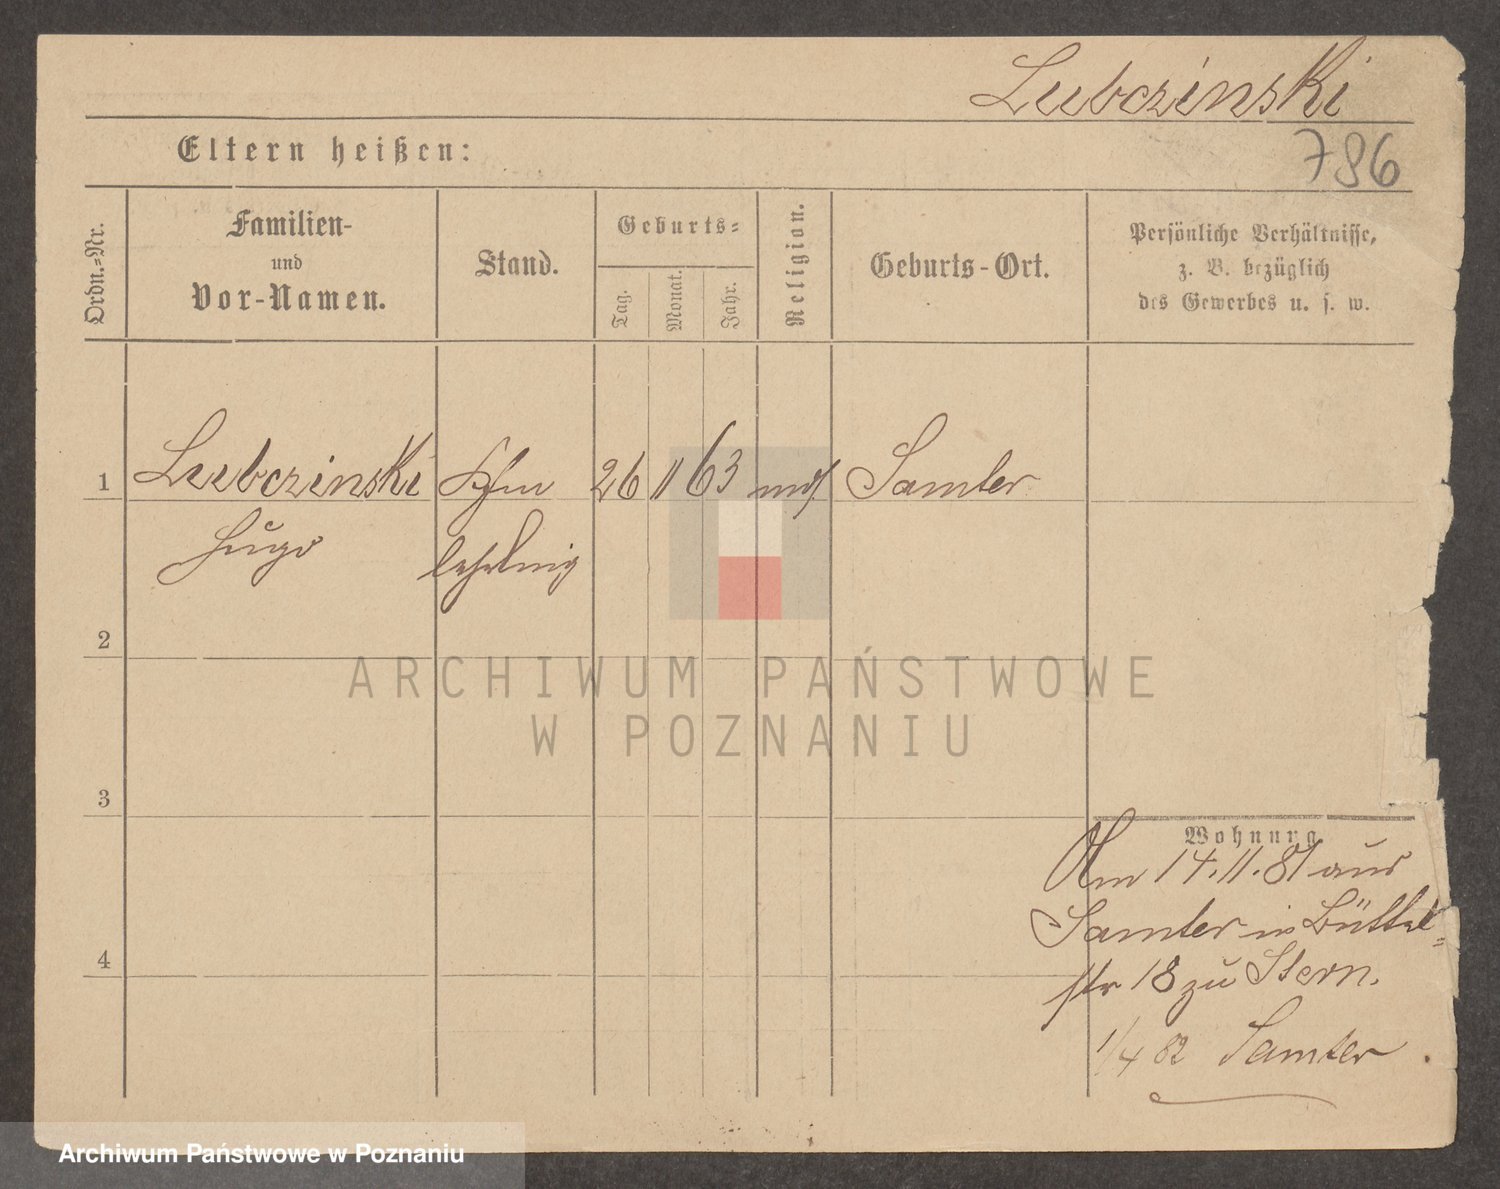 Lubczinski
Eltern heißen:
786
Ordn.-Nr.
Familien-
und
Vor-Namen.
Stand.
Geburts-
Tag.
Monat.
Jahr.
Religion.
Geburts-Ort.
Persönliche Verhältnisse,
z. B. bezüglich
des Gewerbes u. s. w.
1
Lubczinski
Kfm
26
11
63
mos.
Samter
Hugo
lehrling
2
ARCHIWUM PAŃSTWOWE
W POZNANIU
3
Wohnung
Am 14.11.81 aus
Samter in Büttel-
str 18 zu Stern.
4
1/4 82 Samter
Archiwum Państwowe w Poznaniu